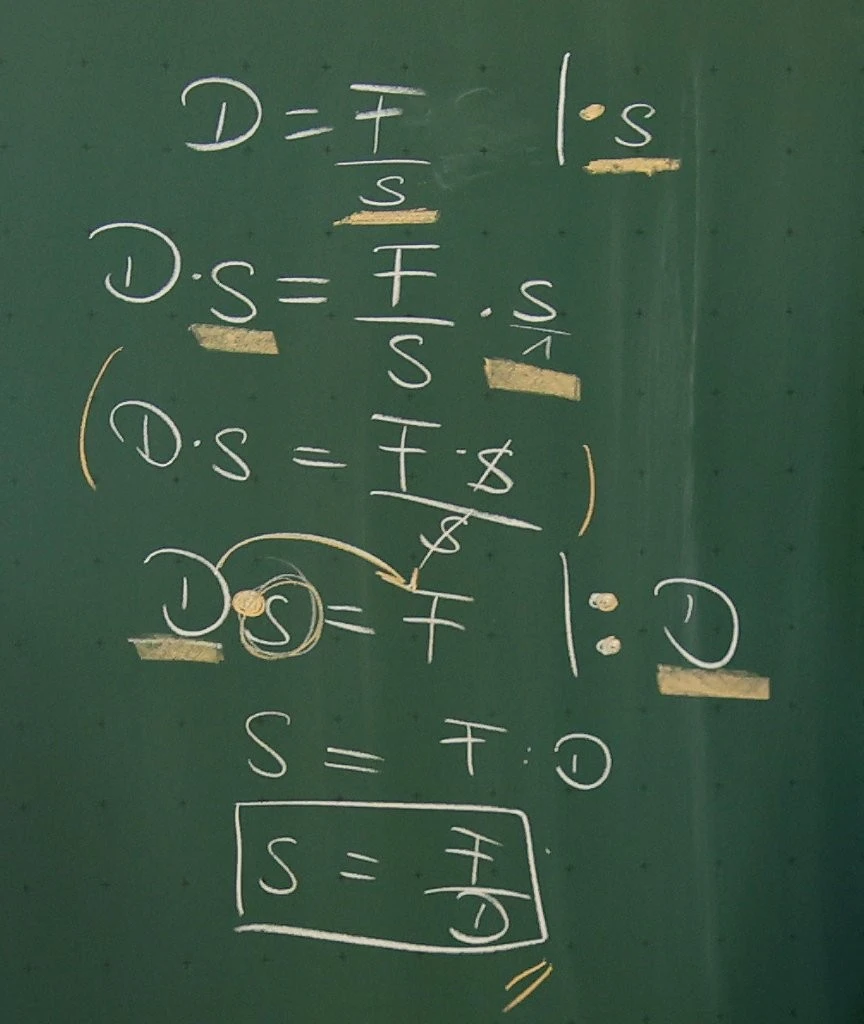 D = F/s | · s
D · s = F/s · s/1
( D · s = F · s/s )
D · s = F | : D
s = F : D
s = F/D